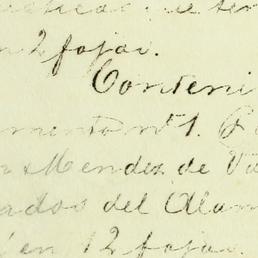 en 2 fojas.
Conteni
mento nº 1.
Mendez de Vi
ados del Alam
en 12 fojas.